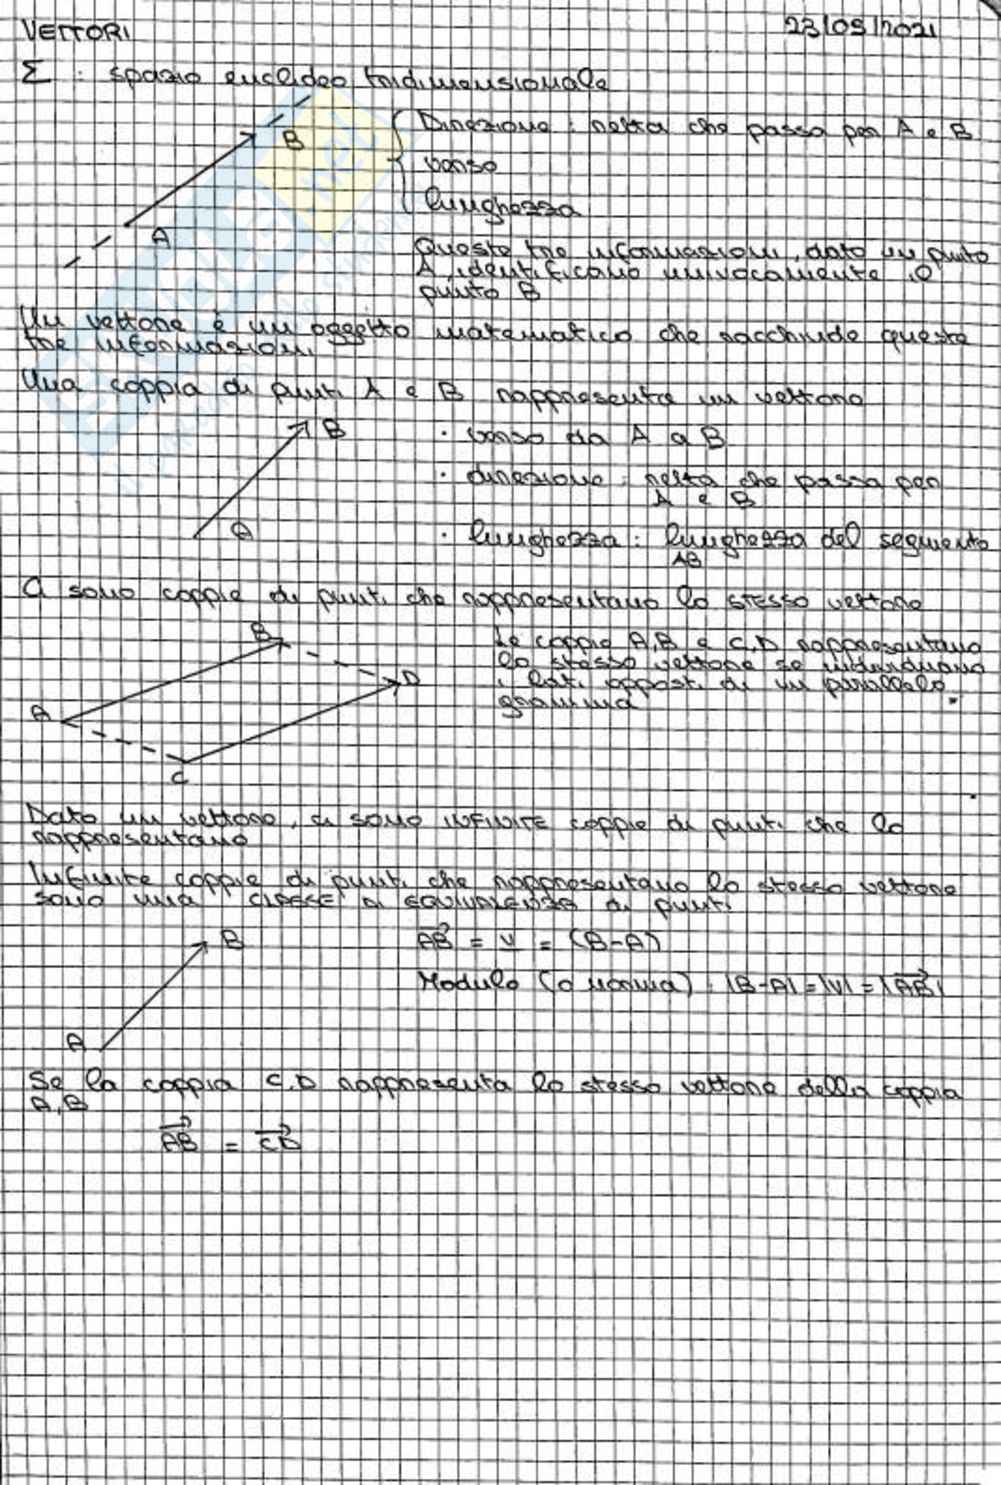 VETTORI 23/09/2021
Σ : spazio euclideo tridimensionale
B
A
Direzione : retta che passa per A e B
verso
lunghezza
Queste tre informazioni, dato un punto
A, identificano univocamente il
punto B
Un vettore è un oggetto matematico che racchiude queste
tre informazioni
Una coppia di punti A e B rappresenta un vettore
B
A
· verso da A a B
· direzione : retta che passa per
A e B
· lunghezza : lunghezza del segmento
AB
Ci sono coppie di punti che rappresentano lo STESSO vettore
B
A
D
C
Le coppie A,B e C,D rappresentano
lo stesso vettore se individuano
i lati opposti di un parallelo
gramma
Dato un vettore, ci sono INFINITE coppie di punti che lo
rappresentano
Infinite coppie di punti che rappresentano lo stesso vettore
sono una CLASSE DI EQUIVALENZA di punti
B
A
AB⃗ = v = (B-A)
Modulo (o norma) : |B-A| = |v| = |AB⃗|
Se la coppia C,D rappresenta lo stesso vettore della coppia
A,B
AB⃗ = CD⃗